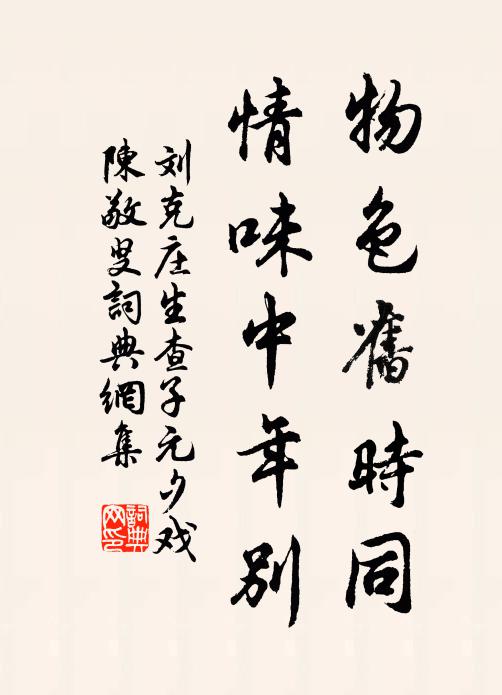 物色舊時同
情味中年别
刘克庄生查子元夕戏
陳敬叟詞典網集
詞典网印